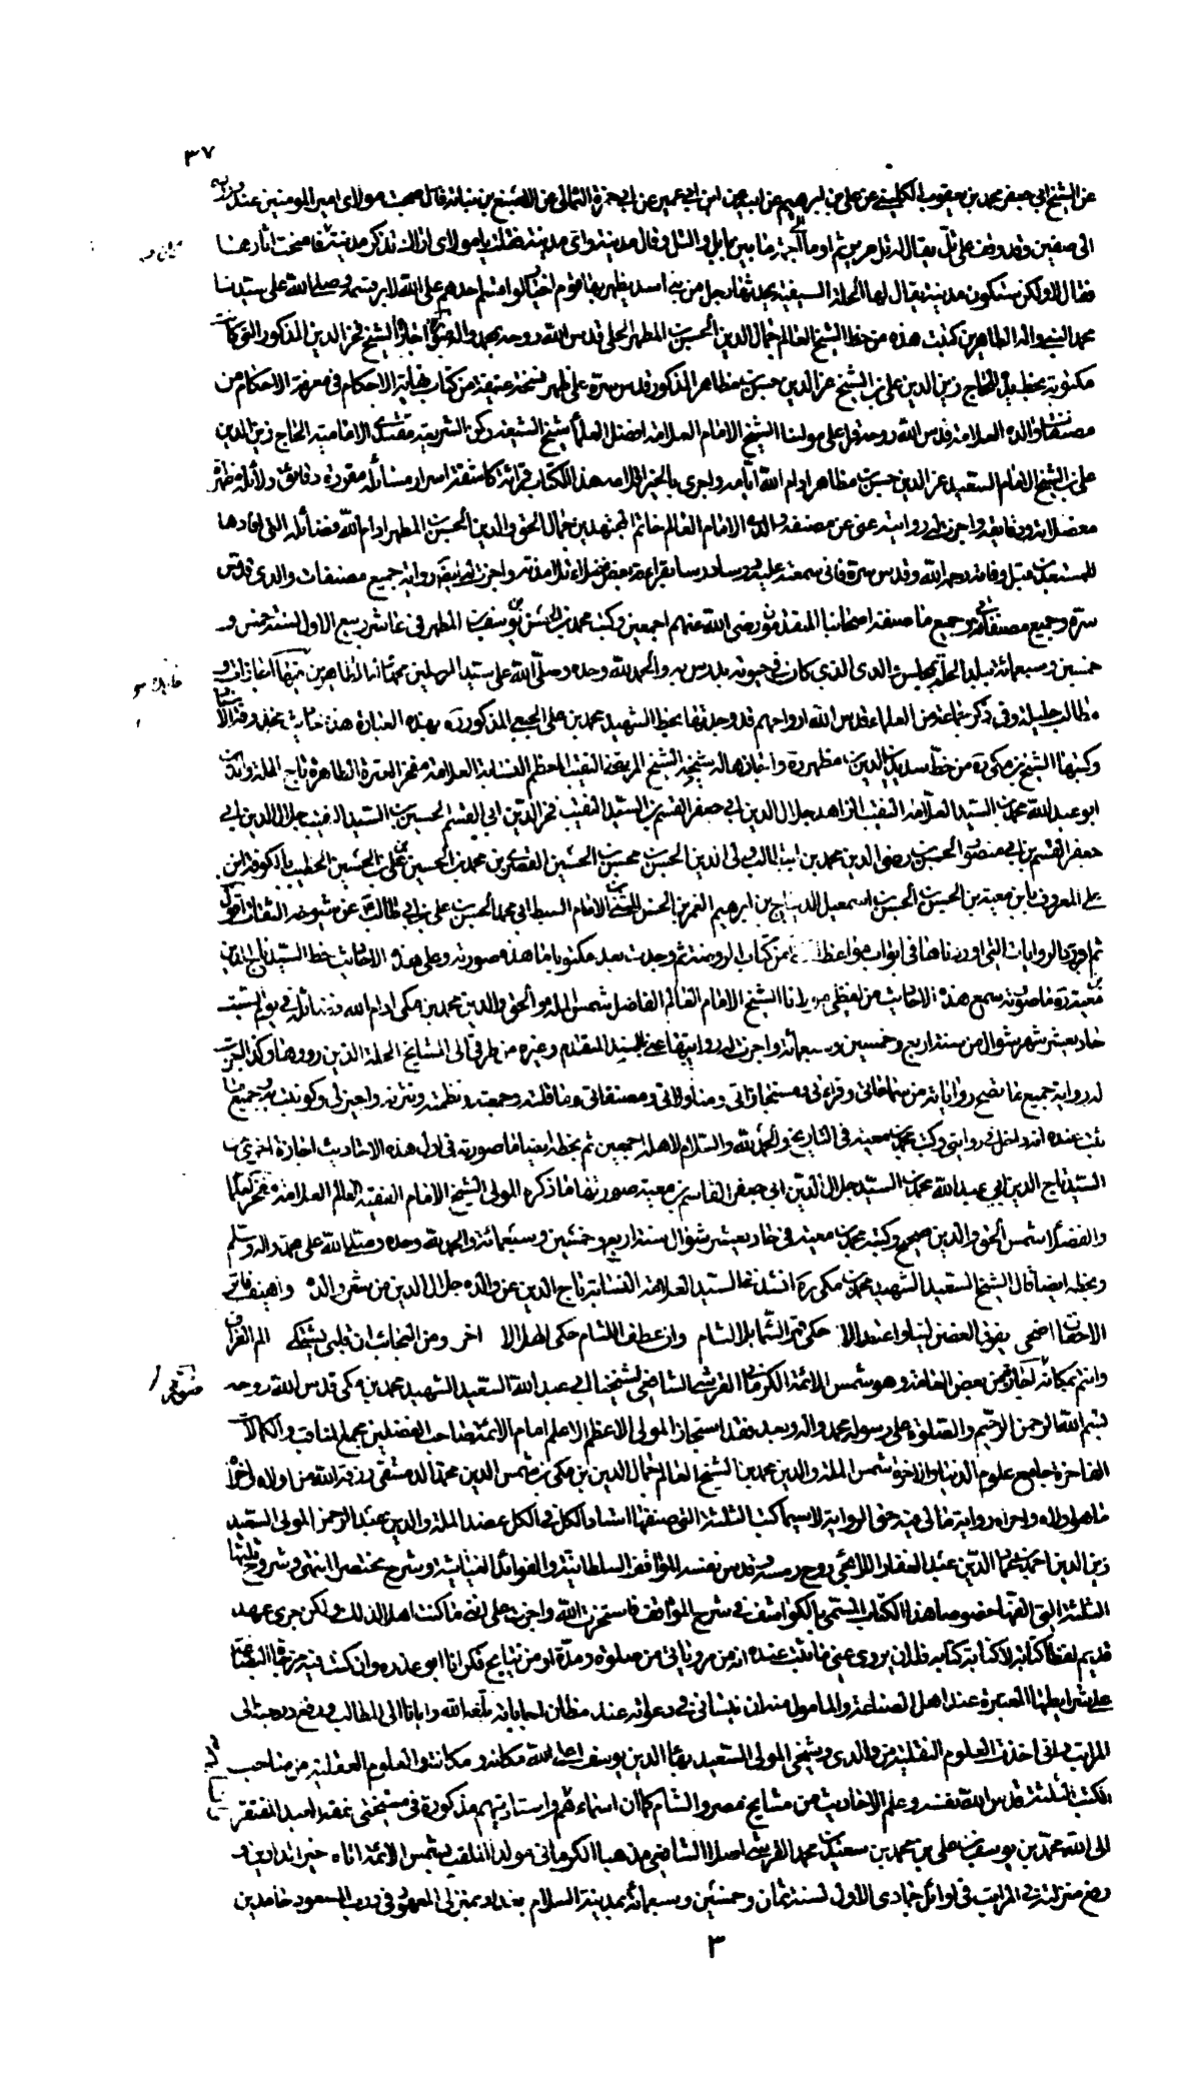 ٣٧
عن الشيخ ابي جعفر محمد بن يعقوب الكليني عن علي بن ابرهيم عن ابيه عن ابن ابي عمير عن ابي حمزة الثمالي عن الاصبغ بن نباته قال صحبت مولاى امير المومنين عند وروده
الى صفين وقد وقف على تل يقال له تل عرير ثم اومأ الى اجمة ما بين بابل والتل وقال مدينة واى مدينة فقلت يا مولاى اراك تذكر مدينة فامحت اثارها
فقال لا ولكن ستكون مدينة يقال لها الحلة السيفية يحدثها رجل من بنى اسد يظهر بها قوم اخيار لو اقسم احدهم على الله لابر قسمه وصلى الله على سيدنا
محمد النبي واله الطاهرين كتبت هذه من خط الشيخ العالم جمال الدين الحسن بن المطهر الحلي قدس الله روحه بمحمد واله اجازة الشيخ فخر الدين المذكور التي كانت
مكتوبة بخطه للحاج زين الدين على بن الشيخ عز الدين حسن بن مظاهر المذكور قدس سره على ظهر نسخة عتيقة من كتاب نهاية الاحكام في معرفة الاحكام من
مصنفات والده العلامة قدس الله روحه قرا على مولنا الشيخ الامام العلامة افضل العلماء شيخ الشيعة ركن الشريعة مقتدى الامامية الحاج زين الدين
على بن الشيخ الامام السعيد عز الدين حسن بن مظاهر ادام الله ايامه واجرى بالخير اقلامه هذا الكتاب قرائة كاشفة اسرار مسائله مقررة دقائق دلائله مظهرة
معضلاته ودقايقه واجزت له روايته عنى عن مصنفه والدى الامام العالم خاتم المجتهدين جمال الحق والدين الحسن بن المطهر ادام الله فضائله التي افادها
للمستفيدين قبل وفاته رحمه الله وقدس سره فاني سمعته عليه درسا درسا بقراءة بعض فضلاء تلامذته واجزت له ايضا رواية جميع مصنفات والدى قدس
سره وجميع مصنفاتى وجميع ما صنفه اصحابنا المتقدمون رضى الله عنهم اجمعين وكتب محمد بن الحسن بن يوسف بن المطهر في عاشر ربيع الاول لسنة خمس و
خمسين وسبعمائة ببلد الحلة بمجلس والدى الذي كان في حيوته يدرس به والحمد لله وحده وصلى الله على سيد المرسلين محمد واله الطاهرين
مطالب جليلة وفى ذكر جماعة من العلماء قدس الله ارواحهم قد وجدتها بخط الشهيد محمد بن على الجبعي المذكور ره بهذه العبارة هذه
وكتبها الشيخ بن مكى ره من خط سديد الدين بن مظهر ره واجازها له شيخه الشيخ المرتضى النقيب المعظم النسابة العلامة فخر العترة الطاهرة تاج الملة والدين
ابو عبد الله محمد بن السيد العلامة النقيب الزاهد جلال الدين ابي جعفر القسم بن السيد النقيب فخر الدين ابي القسم الحسين بن السيد النقيب جلال الدين ابي
جعفر القسم بن ابي منصور الحسن بن رضى الدين محمد بن ابيطالب ولى الدين الحسن بن محمد بن الحسين القصرى بن محمد بن الحسين بن على بن الحسين الخطيب بالكوفة ابن
على المعروف بابن معية بن الحسن بن الحسن بن اسمعيل الديباج بن ابرهيم الغمر بن الحسن المثنى بن الامام السبط ابي محمد الحسن بن على بن ابي طالب ع عن شيوخه الثقات اقول
ثم اورد الروايات التي اوردناها في ابواب مواعظ من كتاب الروضة ثم وجدت بعد مكتوبا ما هذه صورته وعلى هذه الاحاديث خط السيد تاج الدين
بن معية ره ما صورته سمع هذه الاحاديث من لفظى مولانا الشيخ الامام العالم الفاضل شمس الملة والحق والدين محمد بن مكى ادام الله فضائله في يوم السبت
حادى عشر شهر شوال من سنة اربع وخمسين وسبعمائة واجزت له روايتها عن السيد المتقدم وغيره من طرقى الى المشايخ الحلة الذين رووها وكذا اجزت
له رواية جميع ما تصح روايته من سماعاتى وقراءتى ومستجازاتى ومناولاتى ومصنفاتى وما قلته وجمعته ونظمته ونثرته واجيز لى وكوتبت به وجميع ما
ثبت عنده انه داخل في روايتى وكتب محمد بن معية في التاريخ والحمد لله والسلام لاهله اجمعين ثم بخطه ايضا ما صورته في اول هذه الاحاديث اجازة اخرى من
السيد تاج الدين ابي عبد الله محمد بن السيد جلال الدين ابي جعفر القاسم بن معية صورتها ما ذكره المولى الشيخ الامام الفقيه العالم العلامة مفخر العلماء
والفضلاء شمس الحق والدين صحيح وكتب محمد بن معية في حاديعشر شوال سنة اربع وخمسين وسبعمائة والحمد لله وحده وصلى الله على محمد واله وسلم
وبخطه ايضا قال الشيخ السعيد الشهيد محمد بن مكى ره انشدنا السيد العلامة النسابة تاج الدين عن والده جلال الدين من شعر والده
الاحقاف اضحى يفوق الغصن لينا واعتدالا حكى قمر السما بلا لثام وان عطف اللثام حكى الهلالا اخر ومن العجائب ان قلبى يشتكى الم الفراق
وانتم بمكانه اجازة من بعض العامة وهو شمس الائمة الكرمانى القرشى الشافعى لشيخنا ابي عبد الله السعيد الشهيد محمد بن مكى قدس الله روحه
بسم الله الرحمن الرحيم والصلوة على رسوله محمد واله وبعد فقد استجاز المولى الاعظم الاعلم امام الائمة صاحب الفضلين مجمع المناقب والكمالات
الفاخرة جامع علوم الدنيا والاخرة شمس الملة والدين محمد بن الشيخ العالم جمال الدين بن مكى بن شمس الدين محمد الدمشقى رزقه الله من اولاه واخراه
ما هو اولاه واحراه رواية ما لى فيه حق الرواية لا سيما كتب الثلثة التي صنفها استاد الكل في الكل عضد الملة والدين عبد الرحمن المولى السعيد
زين الدين احمد بن عبد الغفار الايجى روح رمسه وقدس نفسه المواقف السلطانية والفوائد الغياثية وشرح مختصر المنتهى وشروحى
الثلثة التي الفتها خصوصا هذا الكتاب المسمى بالكواشف في شرح المواقف فاستخرت الله واجزت على انى ما كنت اهلا لذلك ولكن جرى عهد
قديم لفظا لا كناية كتابة فله ان يروى عنى ما ثبت عنده انه من مروياتى من
على شرايطها المعتبرة عند اهل الصناعة والمامول منه ان ينسانى في دعواته عند مظان اجاباته بلغه الله وايانا الى المطالب ورفع درجته الى
المراتب وانى اخذت العلوم النقلية من والدى وشيخى المولى السعيد بهاء الدين يوسف اعلى الله مكانه ومكانته والعلوم العقلية من صاحب
الكتب الثلثة قدس الله نفسه وعلم الاحاديث من مشايخ مصر والشام كما ان اسماءهم واستادتهم مذكورة في مشيختى نمقه العبد المفتقر
الى الله محمد بن يوسف بن على بن محمد بن سعيد بن محمد القرشى اصلا الشافعى مذهبا الكرمانى مولدا الملقب بشمس الائمة اتاه
رفع منزلته في المراتب في اوائل جمادى الاول لسنة ثمان وخمسين وسبعمائة بمدينة السلام بغداد بمنزلى المعمور في درب المسعود حامدين
٣